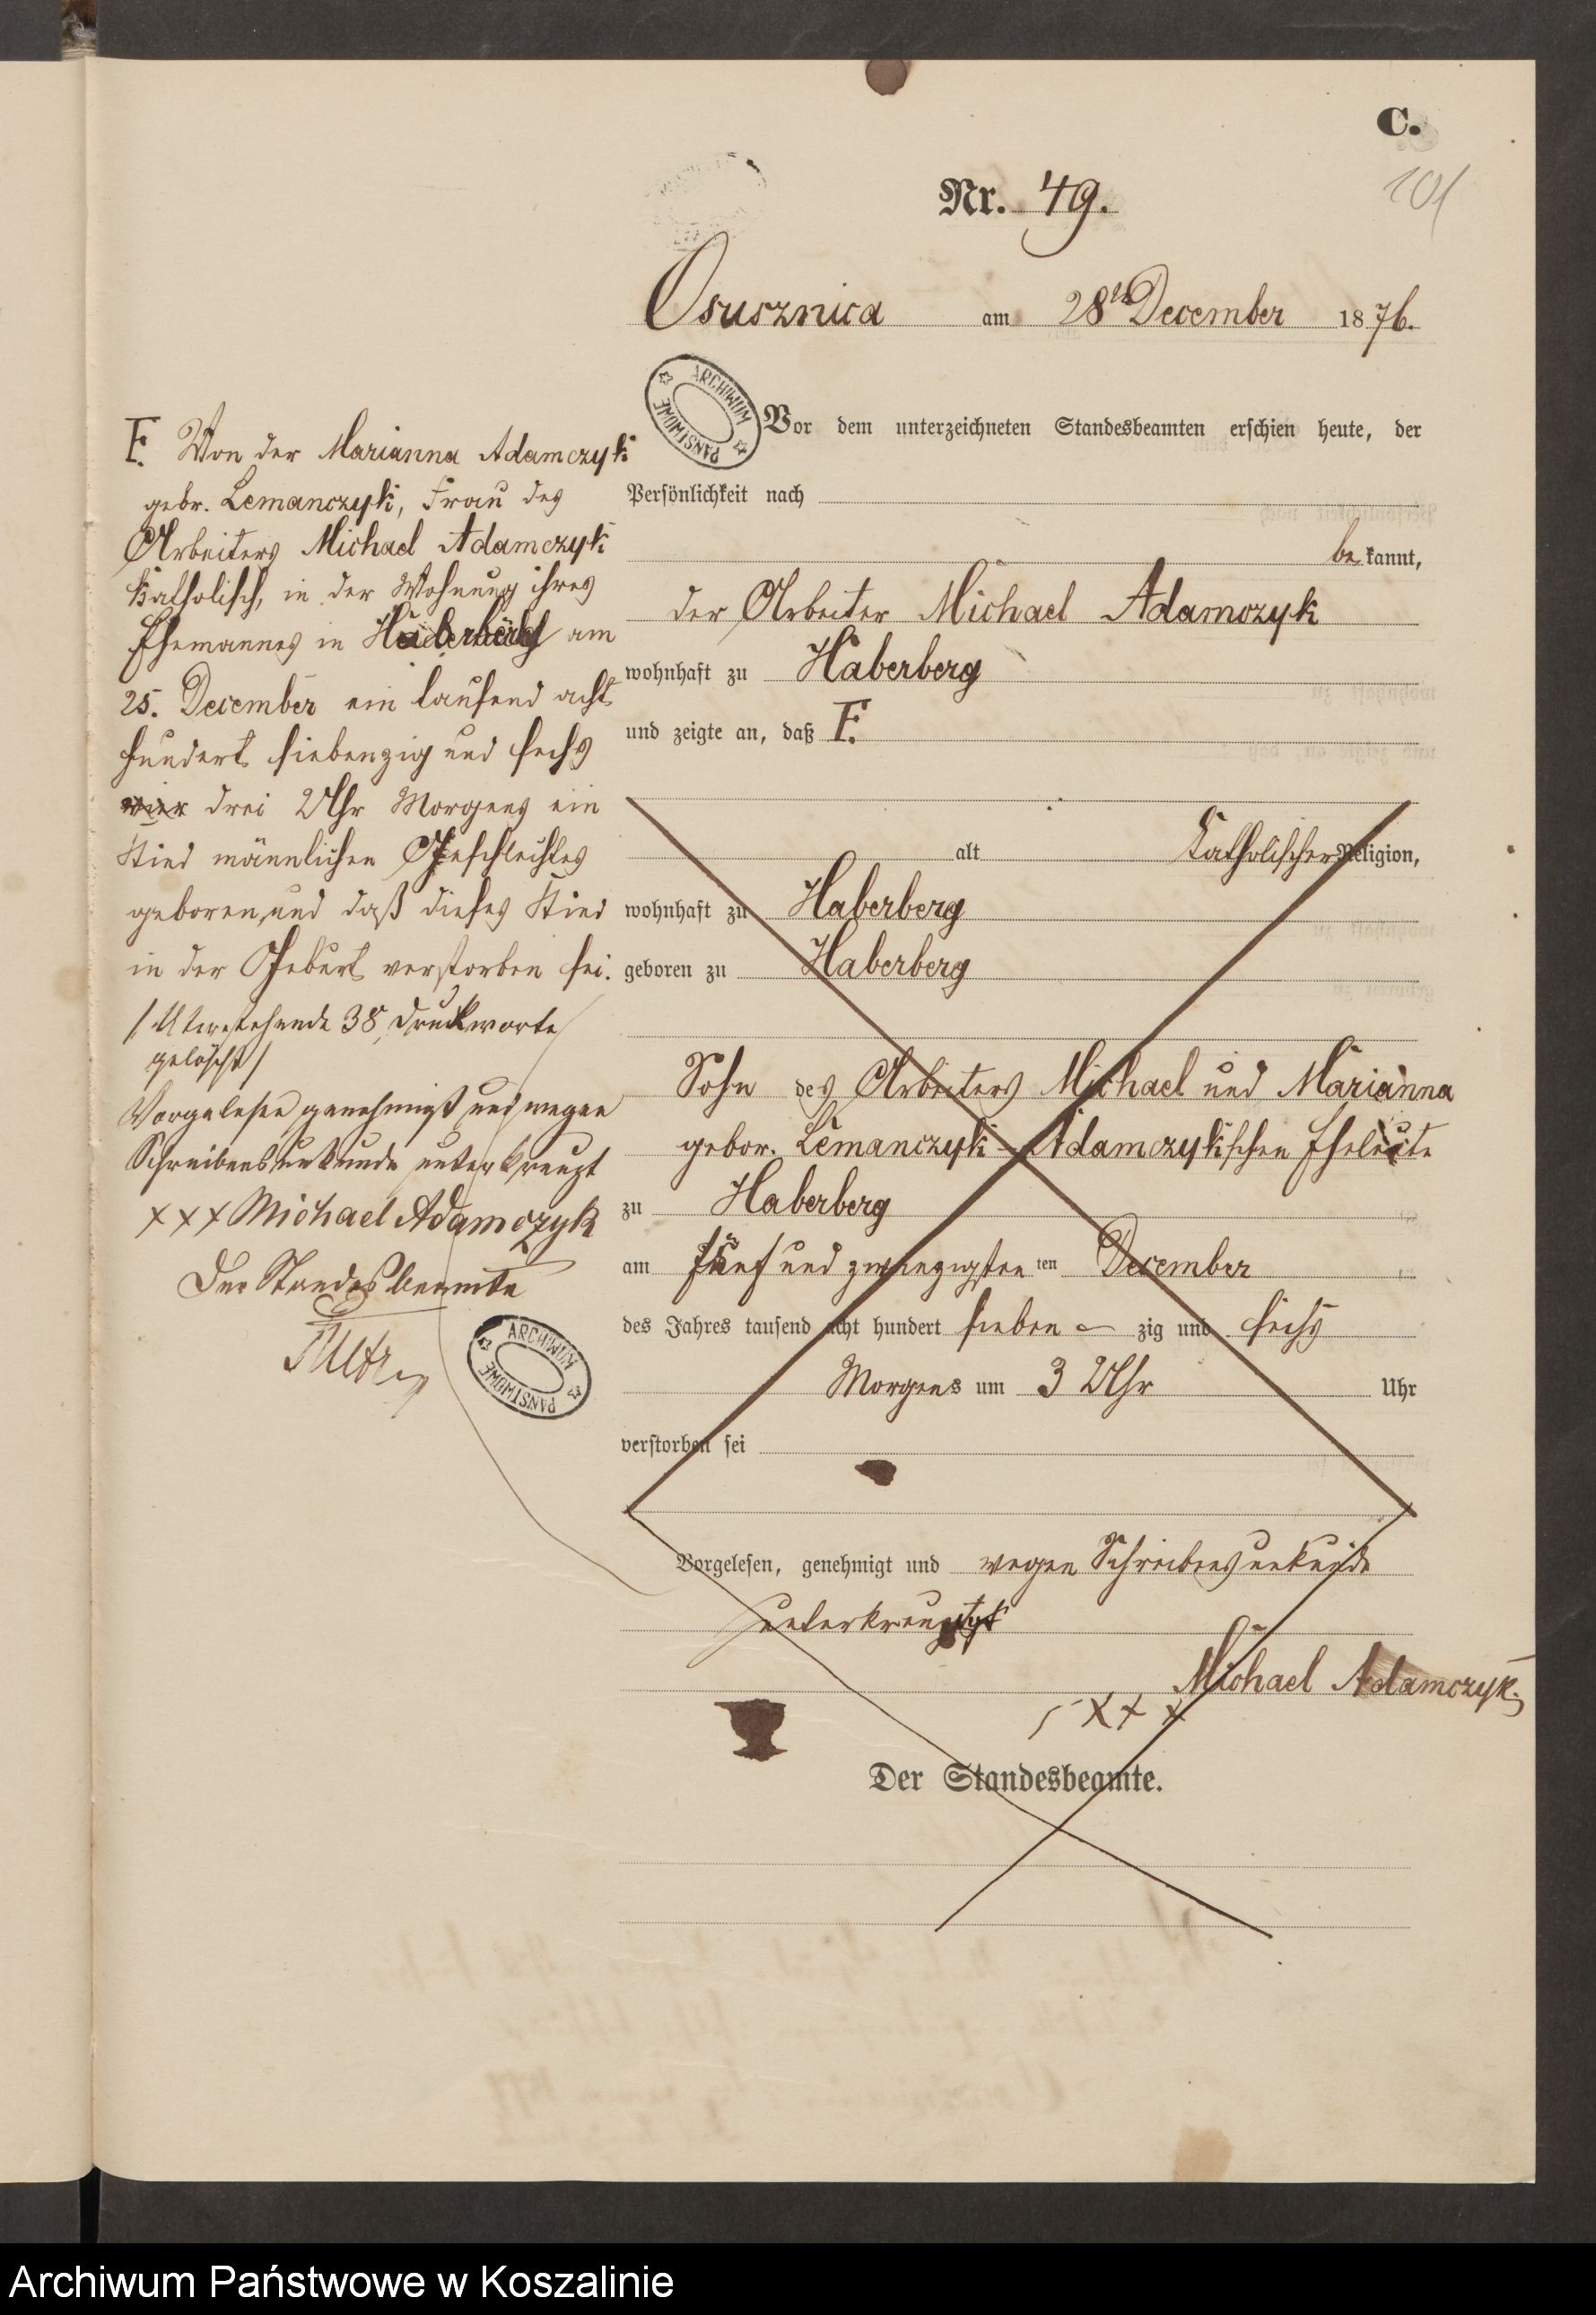 C.
101
Nr. 49.
Osusznica am 28ten December 1876.
ARCHIWUM PAŃSTWOWE
Vor dem unterzeichneten Standesbeamten erschien heute, der
Persönlichkeit nach
bekannt,
der Arbeiter Michael Adamczyk
wohnhaft zu Haberberg
und zeigte an, daß F.
alt Katholischer Religion,
wohnhaft zu Haberberg
geboren zu Haberberg
Sohn des Arbeiters Michael und Marianna
gebor. Lemanczyk - Adamczykschen Eheleute
zu Haberberg
am fünf und zwanzigsten ten December
des Jahres tausend acht hundert sieben zig und sechs
Morgens um 3 Uhr Uhr
verstorben sei
Vorgelesen, genehmigt und wegen Schreibensunkunde
unterkreuzt
Michael Adamczyk.
XXX
Der Standesbeamte.
F. Von der Marianna Adamczyk
gebr. Lemanczyk, Frau des
Arbeiters Michael Adamczyk
Katholisch, in der Wohnung ihres
Ehemannes in Haberberg am
25. December ein tausend acht
hundert siebenzig und sechs
vier drei Uhr Morgens ein
Kind männlichen Geschlechtes
geboren, und daß dieses Kind
in der Geburt verstorben sei.
38 Druckworte
gelöscht/
Vorgelesen genehmigt und wegen
Schreibensunkunde unterkreuzt
XXX Michael Adamczyk
Der Standesbeamte
ARCHIWUM PAŃSTWOWE
Archiwum Państwowe w Koszalinie